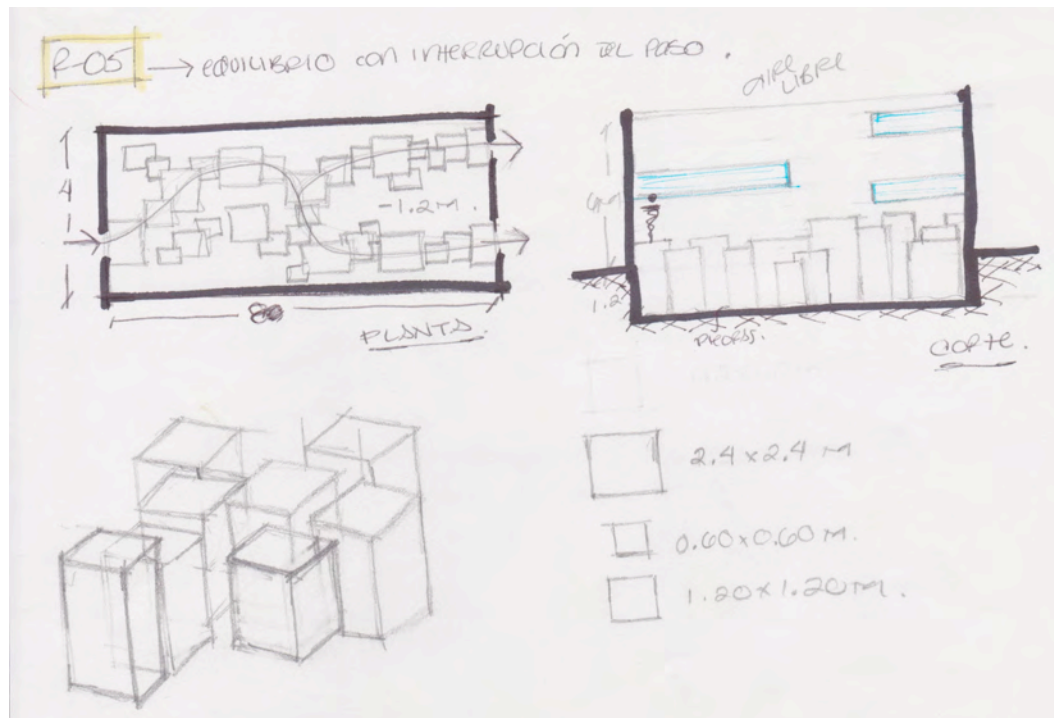 R-05 → EQUILIBRIO con INTERRUPCIÓN DEL PASO.
AIRE LIBRE
4
-1.2 M.
80
PLANTA.
1.2
CORTE.
2.4 x 2.4 M
0.60 x 0.60 M.
1.20 x 1.20 M.